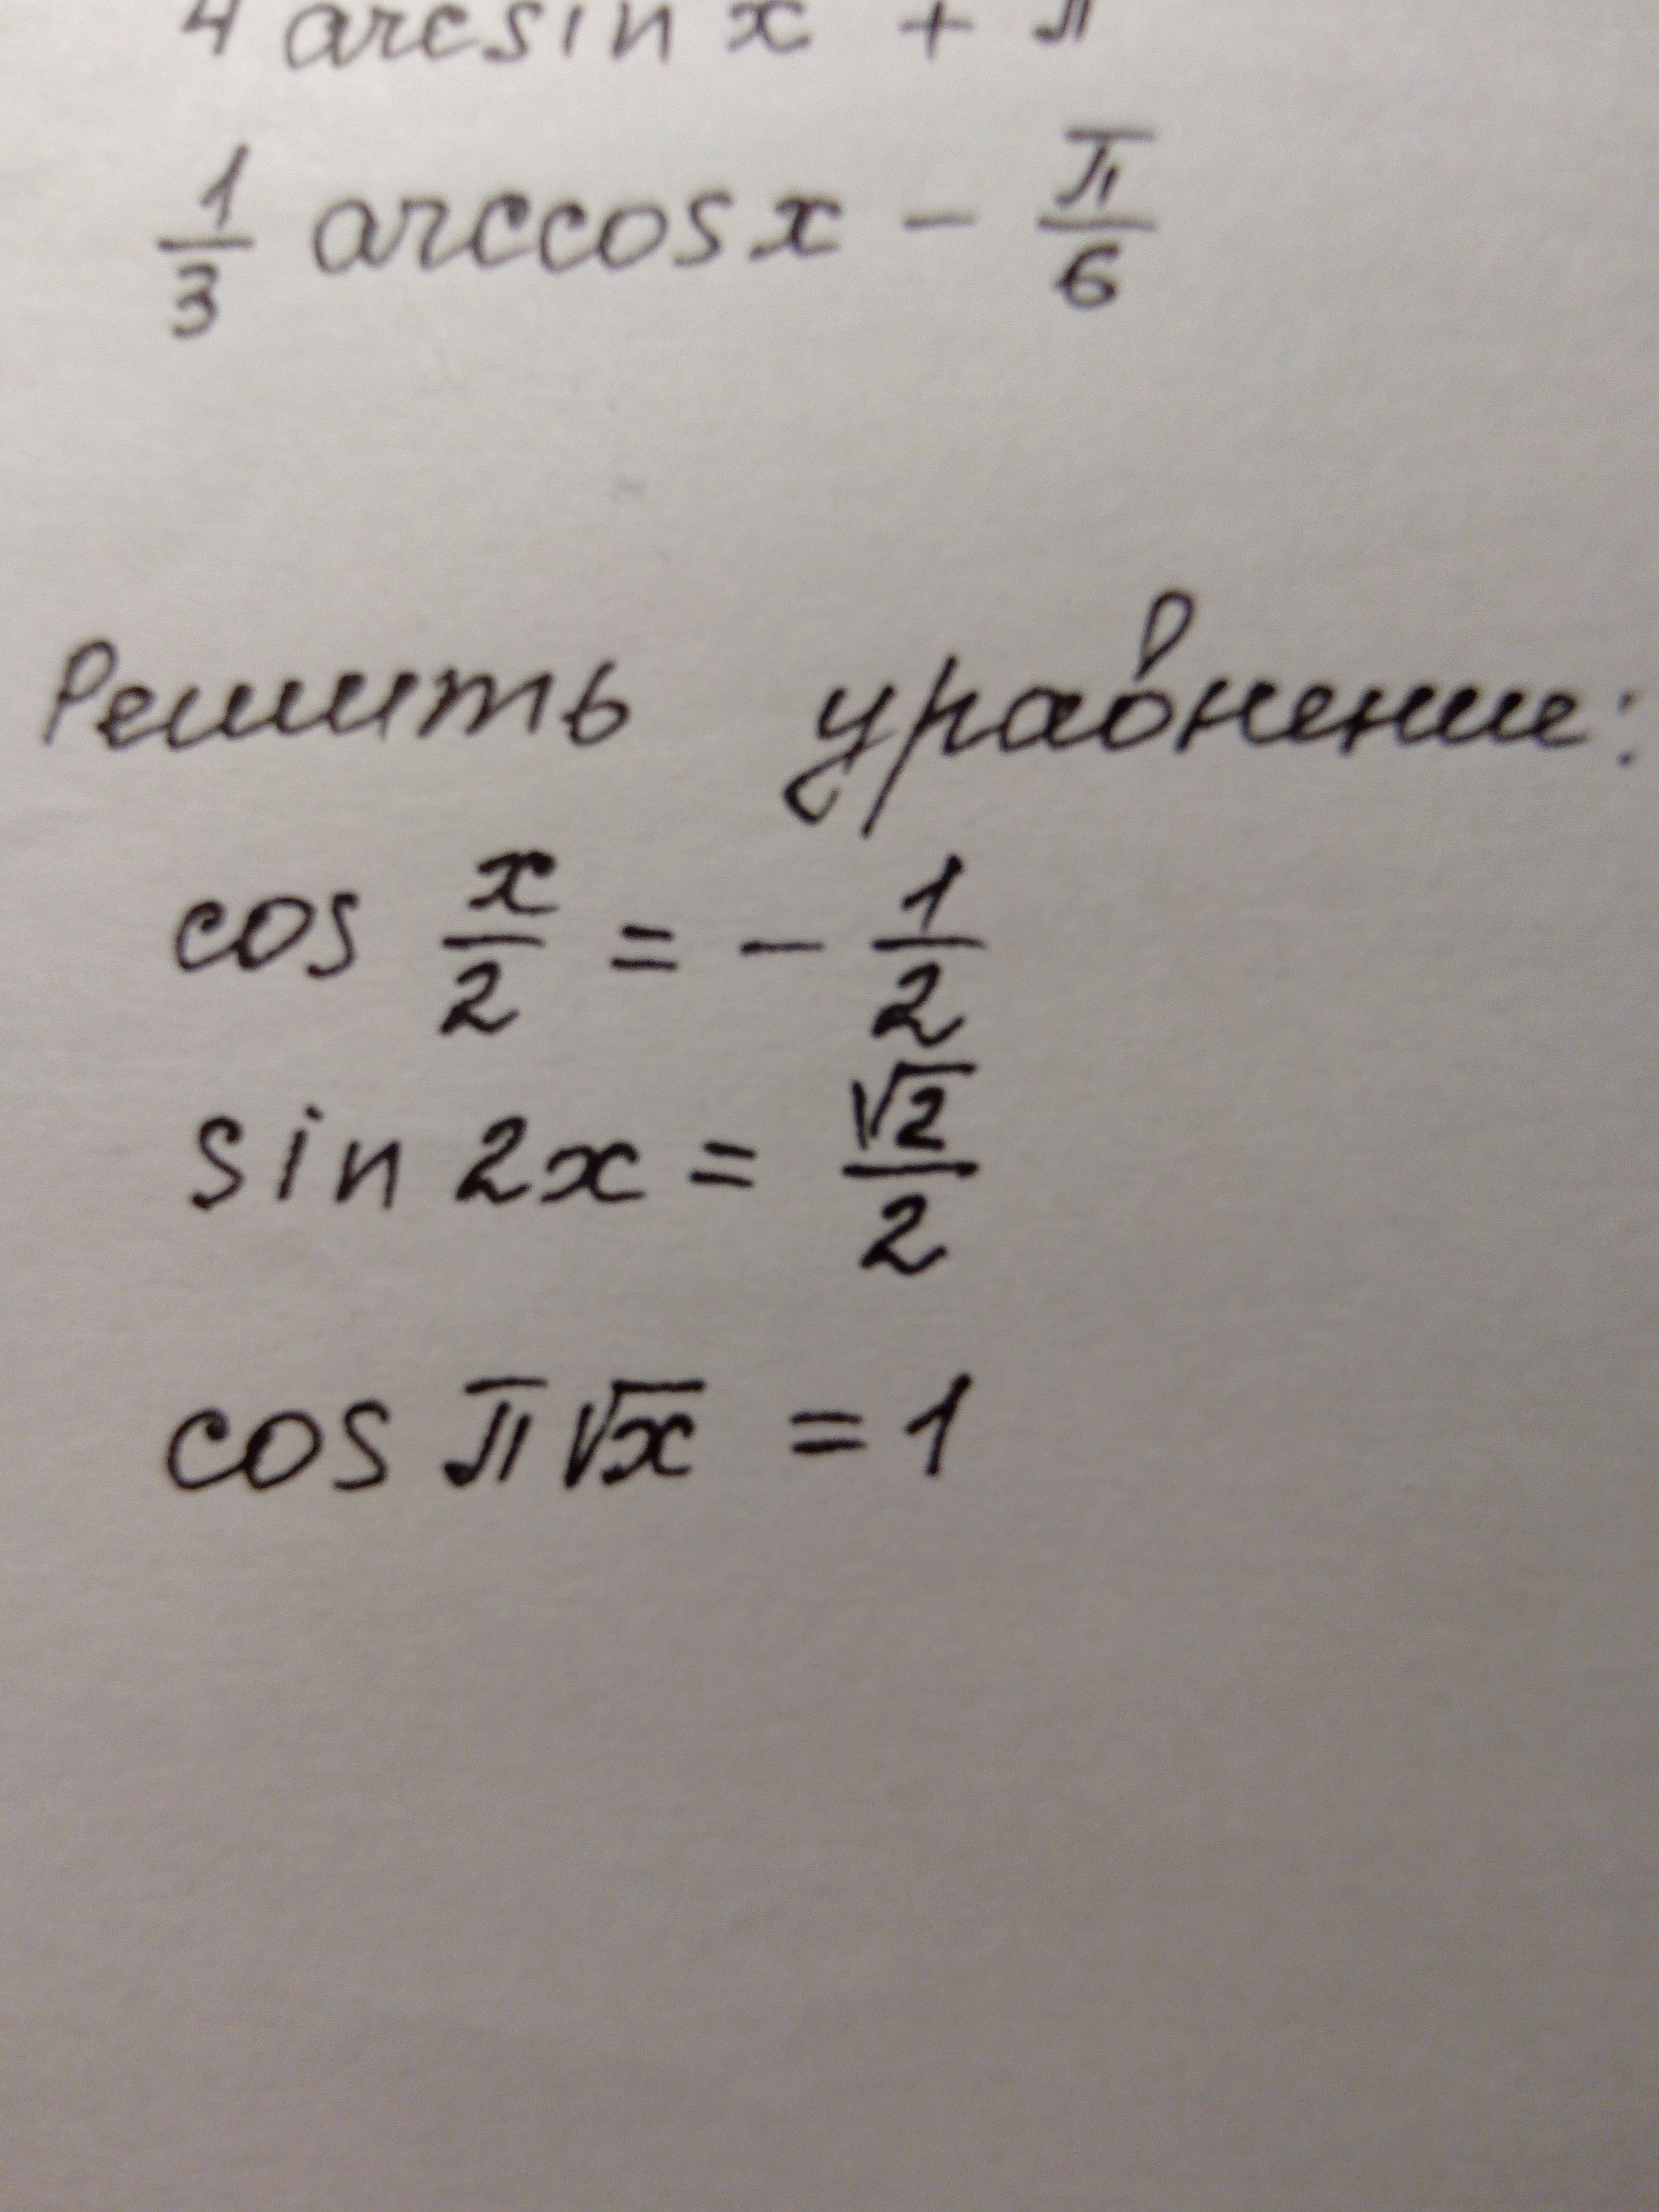 4 arcsin x + π
1/3 arccos x − π/6
Решить уравнение:
cos x/2 = − 1/2
sin 2x = √2/2
cos π√x = 1